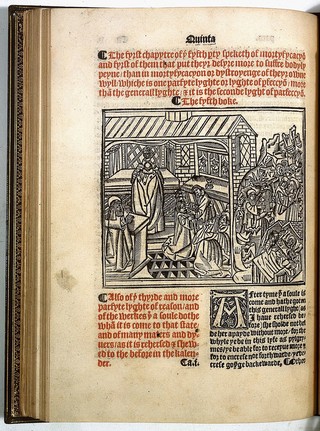 Quinta
¶The fyrst chapytre of yͤ fyfth pty speketh of mortyfycacyō
and fyrst of them that put theyr desyre more to suffre bodyly
peyne / than in mortyfycacyon or dystroyenge of theyr owne
wyll. whiche is one parfyte lyghte or lyghte of pfeccyō / more
thā the generall lyghte / & it is the seconde lyght of parfeccyō.
¶The fyfth boke.
¶Also of yͤ thyrde and more
parfyte lyghte of reason / and
of the werkes yͭ a soule dothe
whā it is come to that state /
and of many maters and dy
uers / as it is rehersed & shew
ed to the before in the kalen-
der. Ca.i.
After tyme yͭ a soule is
come and hathe goten
this generall lyght: as
I haue reherced be
fore / she sholde not
be her apayde without more / for the
whyle ye be in this lyfe as pylgry-
mes / ye be able for to receyue more &
for to encrese
crese goynge backewarde,